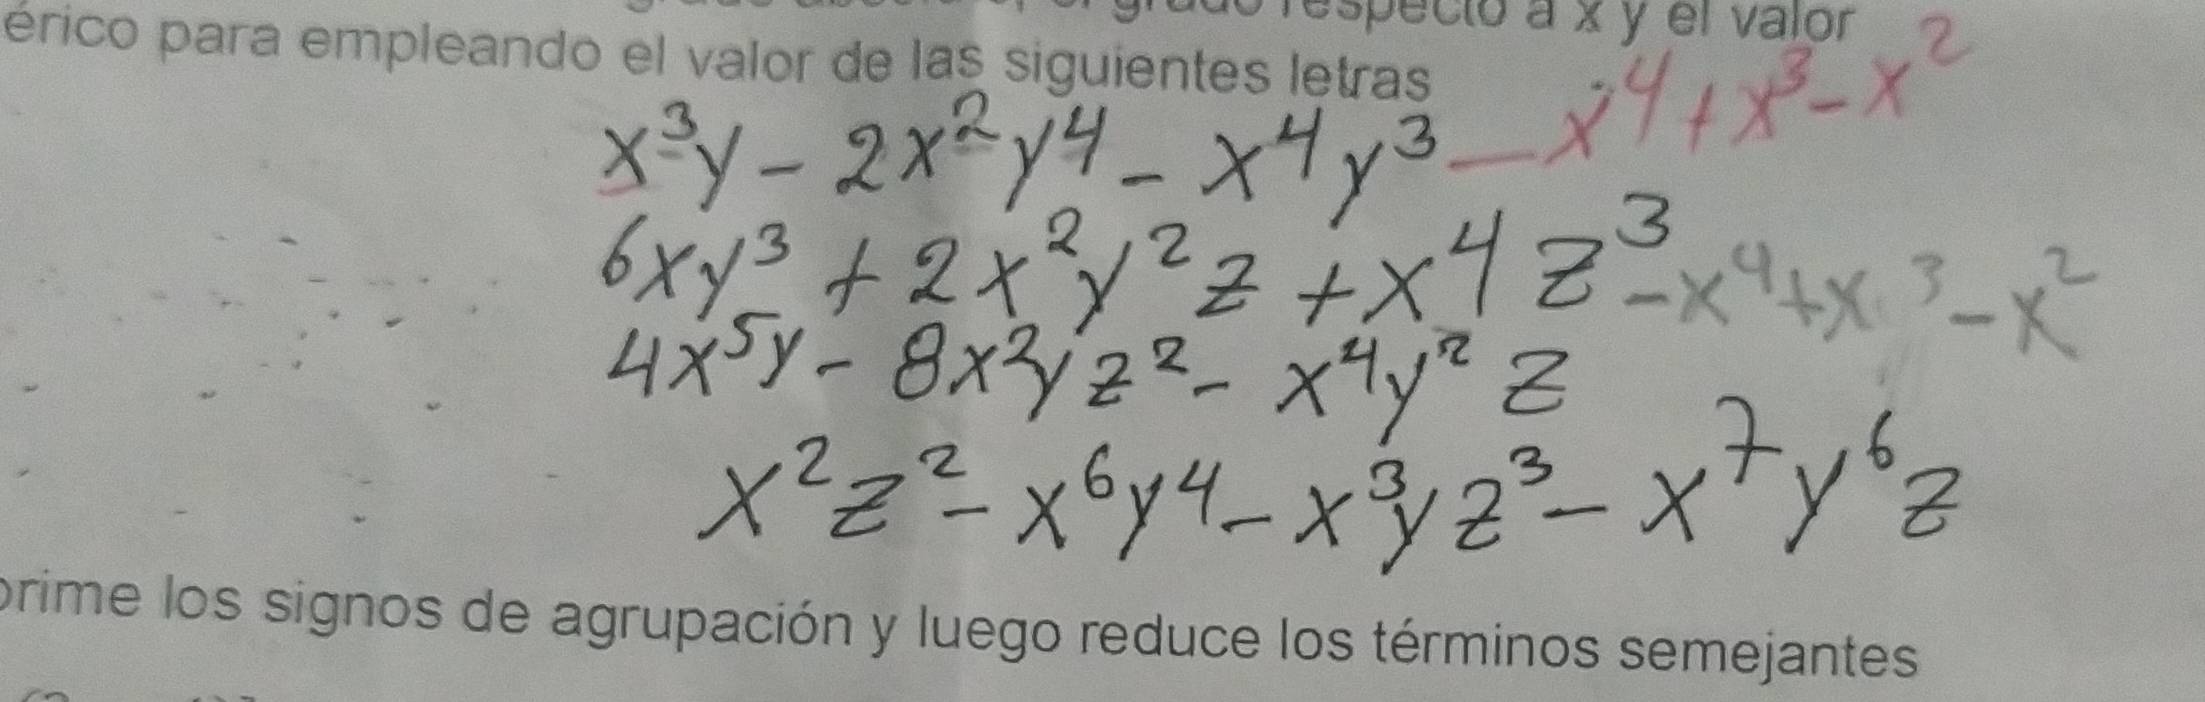 respecto a x y el valor
érico para empleando el valor de las siguientes letras
x³y - 2x²y⁴ - x⁴y³ - x⁴ + x³ - x²
6xy³ + 2x²y²z + x⁴z³ - x⁴ + x³ - x²
4x⁵y - 8x²yz² - x⁴y²z
x²z² - x⁶y⁴ - x³yz³ - x⁷y⁶z
prime los signos de agrupación y luego reduce los términos semejantes